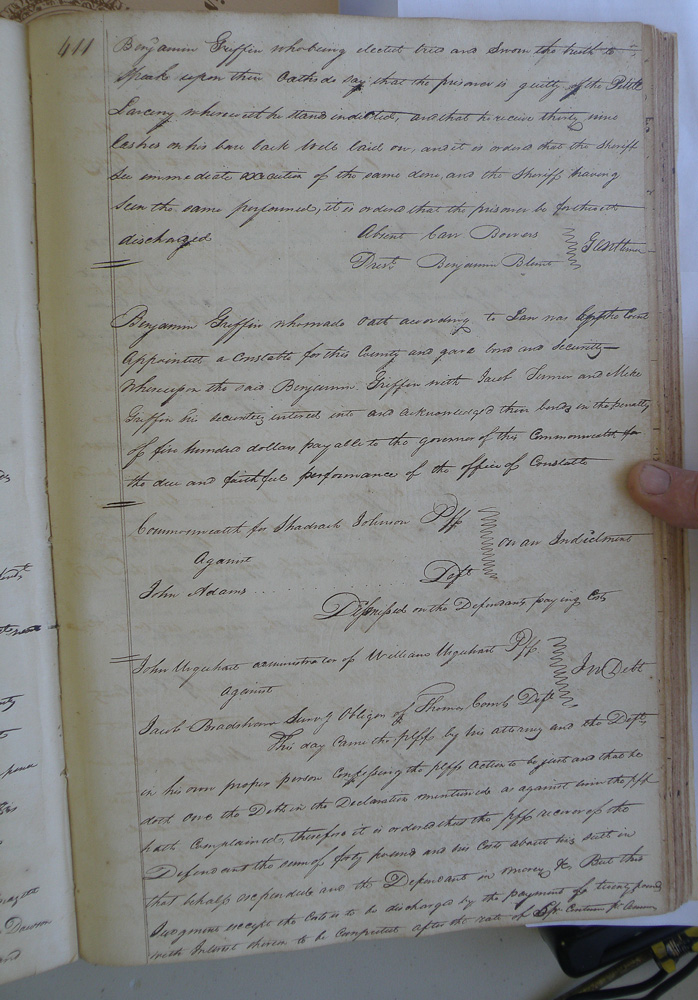 411
Benjamin Griffin who being elected tried and Sworn the truth to
Speak upon their Oaths do say that the prisoner is guilty of the Petit
Larceny wherewith he stands indicted, and that he receive thirty nine
lashes on his bare back Well laid on, and it is ordered that the Sheriff
See immediate execution of the same done, and the Sheriff having
Seen the same performed, it is ordered that the prisoner be forthwith
discharged
Absent Carr Bowers
Prest. Benjamin Blunt
Gentlemen
Benjamin Griffin who made Oath according to Law was by the Court
Appointed a Constable for this County and gave bond and security
Whereupon the said Benjamin Griffin with Jacob Turner and
Griffin his securities entered into and acknowledged their bond in the penalty
of five hundred dollars payable to the governor of this Commonwealth for
the due and faithful performance of the office of Constable
Commonwealth for Shadrach Johnson Plff
Against
on an Indictment
John Adams Deft
Dismissed on the Defendants paying Costs
John Urquhart administrator of William Urquhart Plff
against
In Debt
Jacob Bradshaw Surv.g Obligor of Thomas Combs Deft
This day came the plff by his attorney and the Deft
in his own proper person confessing the plffs action to be just and that he
doth owe the Debt in the Declaration mentioned as against him the plff
hath Complained, therefore it is ordered that the plff recover of the
Defendant the sum of forty pounds and his Costs about his suit in
that behalf expended and the Defendant in mercy &c But this
Judgment except the Costs is to be discharged by the payment of twenty pounds
with Interest thereon to be Computed after the rate of Centum pr. Annum
Dawson